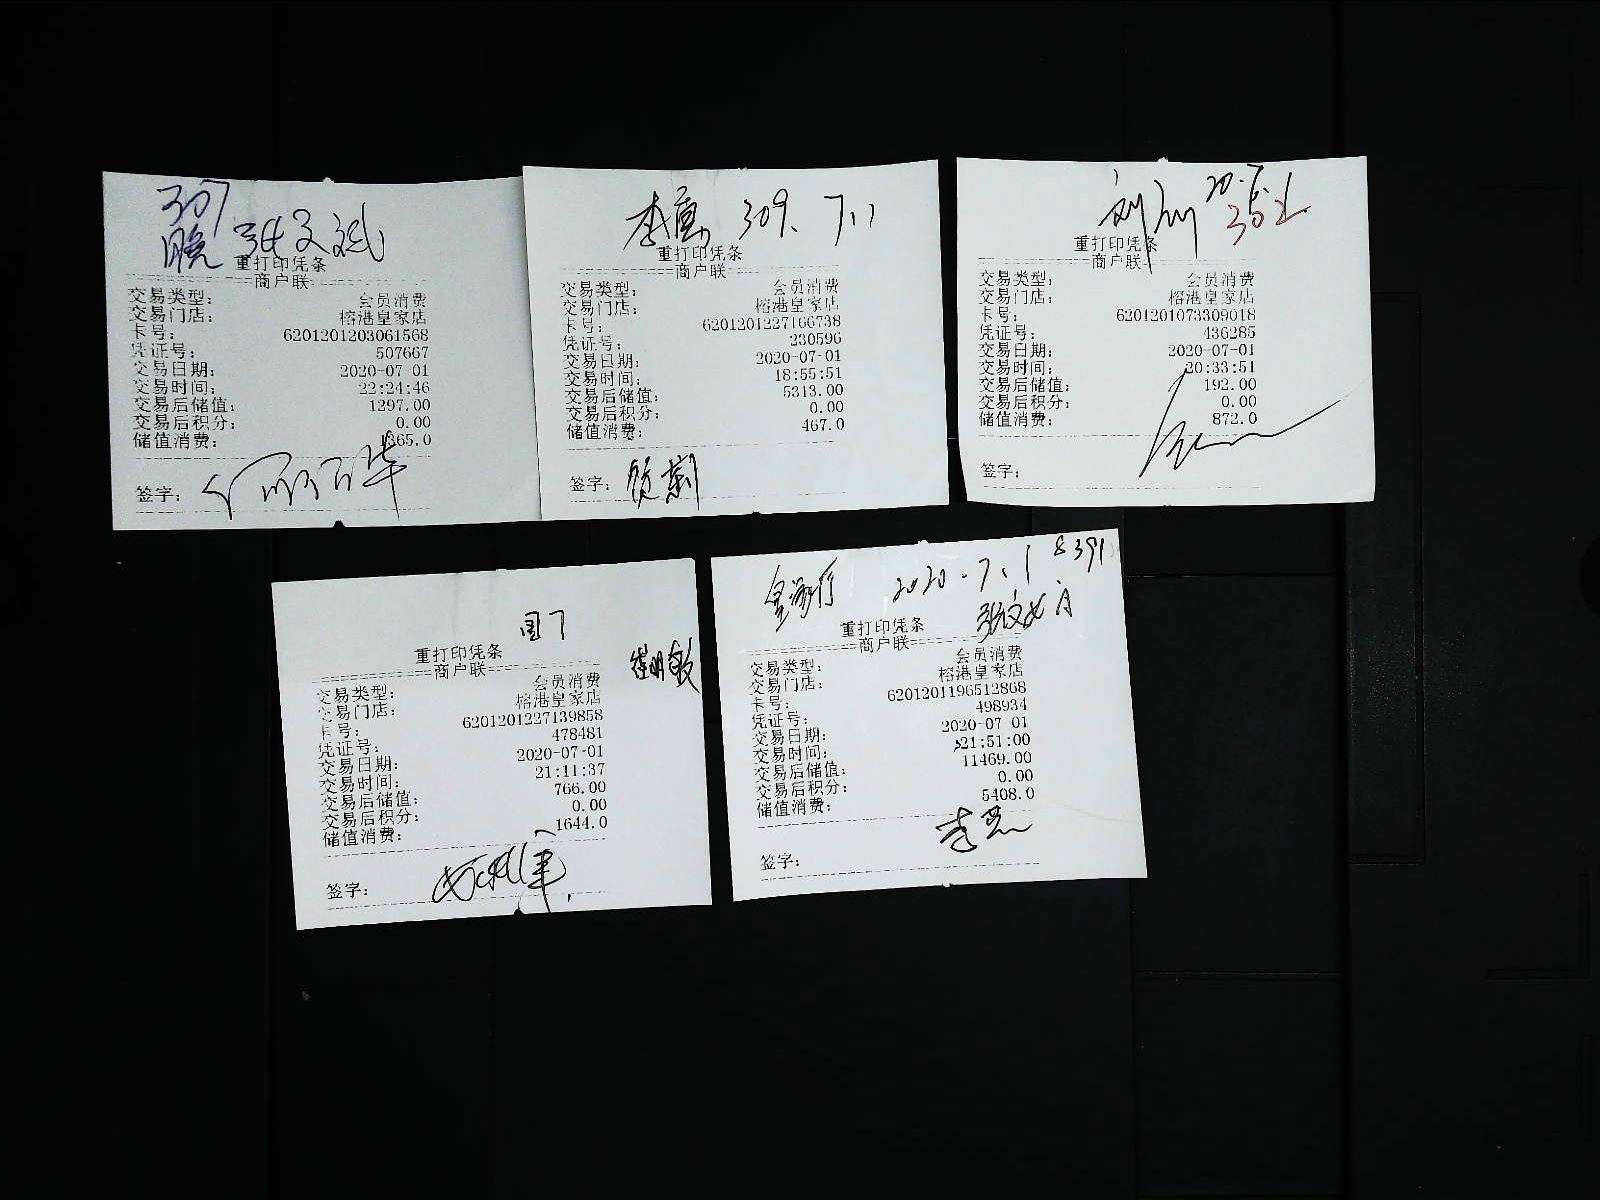 307
晚 张文斌
重打印凭条
商户联
交易类型: 会员消费
交易门店: 榕港皇家店
卡号: 6201201203061568
凭证号: 507667
交易日期: 2020-07-01
交易时间: 22:24:46
交易后储值: 1297.00
交易后积分: 0.00
储值消费: 365.0
签字:
李震 309. 7.1
重打印凭条
商户联
交易类型: 会员消费
交易门店: 榕港皇家店
卡号: 6201201227166738
凭证号: 230596
交易日期: 2020-07-01
交易时间: 18:55:51
交易后储值: 5313.00
交易后积分: 0.00
储值消费: 467.0
签字:
重打印凭条
商户联
交易类型: 会员消费
交易门店: 榕港皇家店
卡号: 6201201073309018
凭证号: 436285
交易日期: 2020-07-01
交易时间: 20:33:51
交易后储值: 192.00
交易后积分: 0.00
储值消费: 872.0
签字:
重打印凭条
商户联
交易类型: 会员消费
交易门店: 榕港皇家店
卡号: 6201201227139858
凭证号: 478481
交易日期: 2020-07-01
交易时间: 21:11:37
交易后储值: 766.00
交易后积分: 0.00
储值消费: 1644.0
签字:
皇家厅 2020.7.1 8391
重打印凭条
商户联
交易类型: 会员消费
交易门店: 榕港皇家店
卡号: 6201201196512868
凭证号: 498934
交易日期: 2020-07-01
交易时间: 21:51:00
交易后储值: 11469.00
交易后积分: 0.00
储值消费: 5408.0
签字: